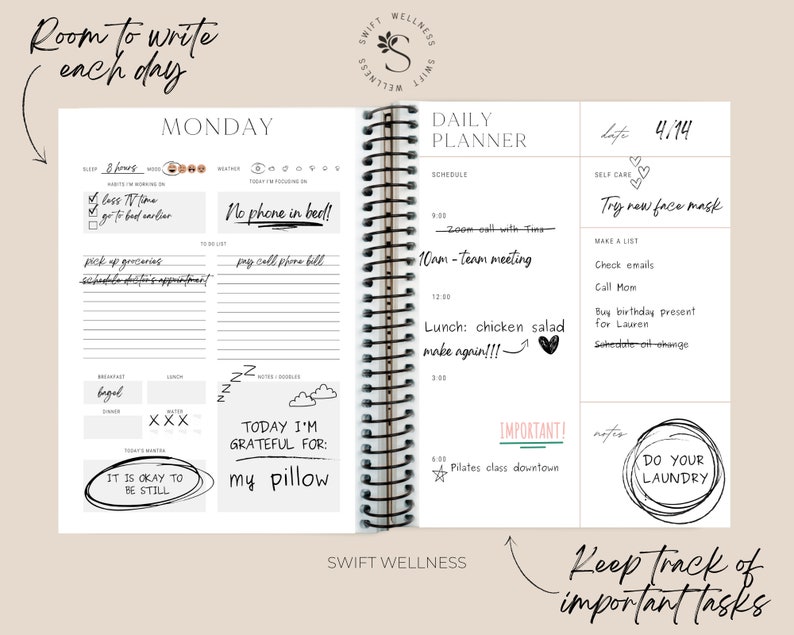 Room to write
each day
SWIFT WELLNESS SWIFT WELLNESS
S
MONDAY
SLEEP 8 hours MOOD WEATHER
HABITS I'M WORKING ON
less TV time
go to bed earlier
TODAY I'M FOCUSING ON
No phone in bed!
TO DO LIST
pick up groceries
schedule doctor's appointment
pay cell phone bill
BREAKFAST
bagel
LUNCH
DINNER
WATER
X X X
TODAY'S MANTRA
IT IS OKAY TO
BE STILL
Z Z Z Z
NOTES / DOODLES
TODAY I'M
GRATEFUL FOR:
my pillow
DAILY
PLANNER
date 4/14
SCHEDULE
9:00
Zoom call with Tina
10am - team meeting
12:00
Lunch: chicken salad
make again!!!
3:00
IMPORTANT!
6:00
Pilates class downtown
SELF CARE
Try new face mask
MAKE A LIST
Check emails
Call Mom
Buy birthday present
for Lauren
Schedule oil change
notes
DO YOUR
LAUNDRY
SWIFT WELLNESS
Keep track of
important tasks